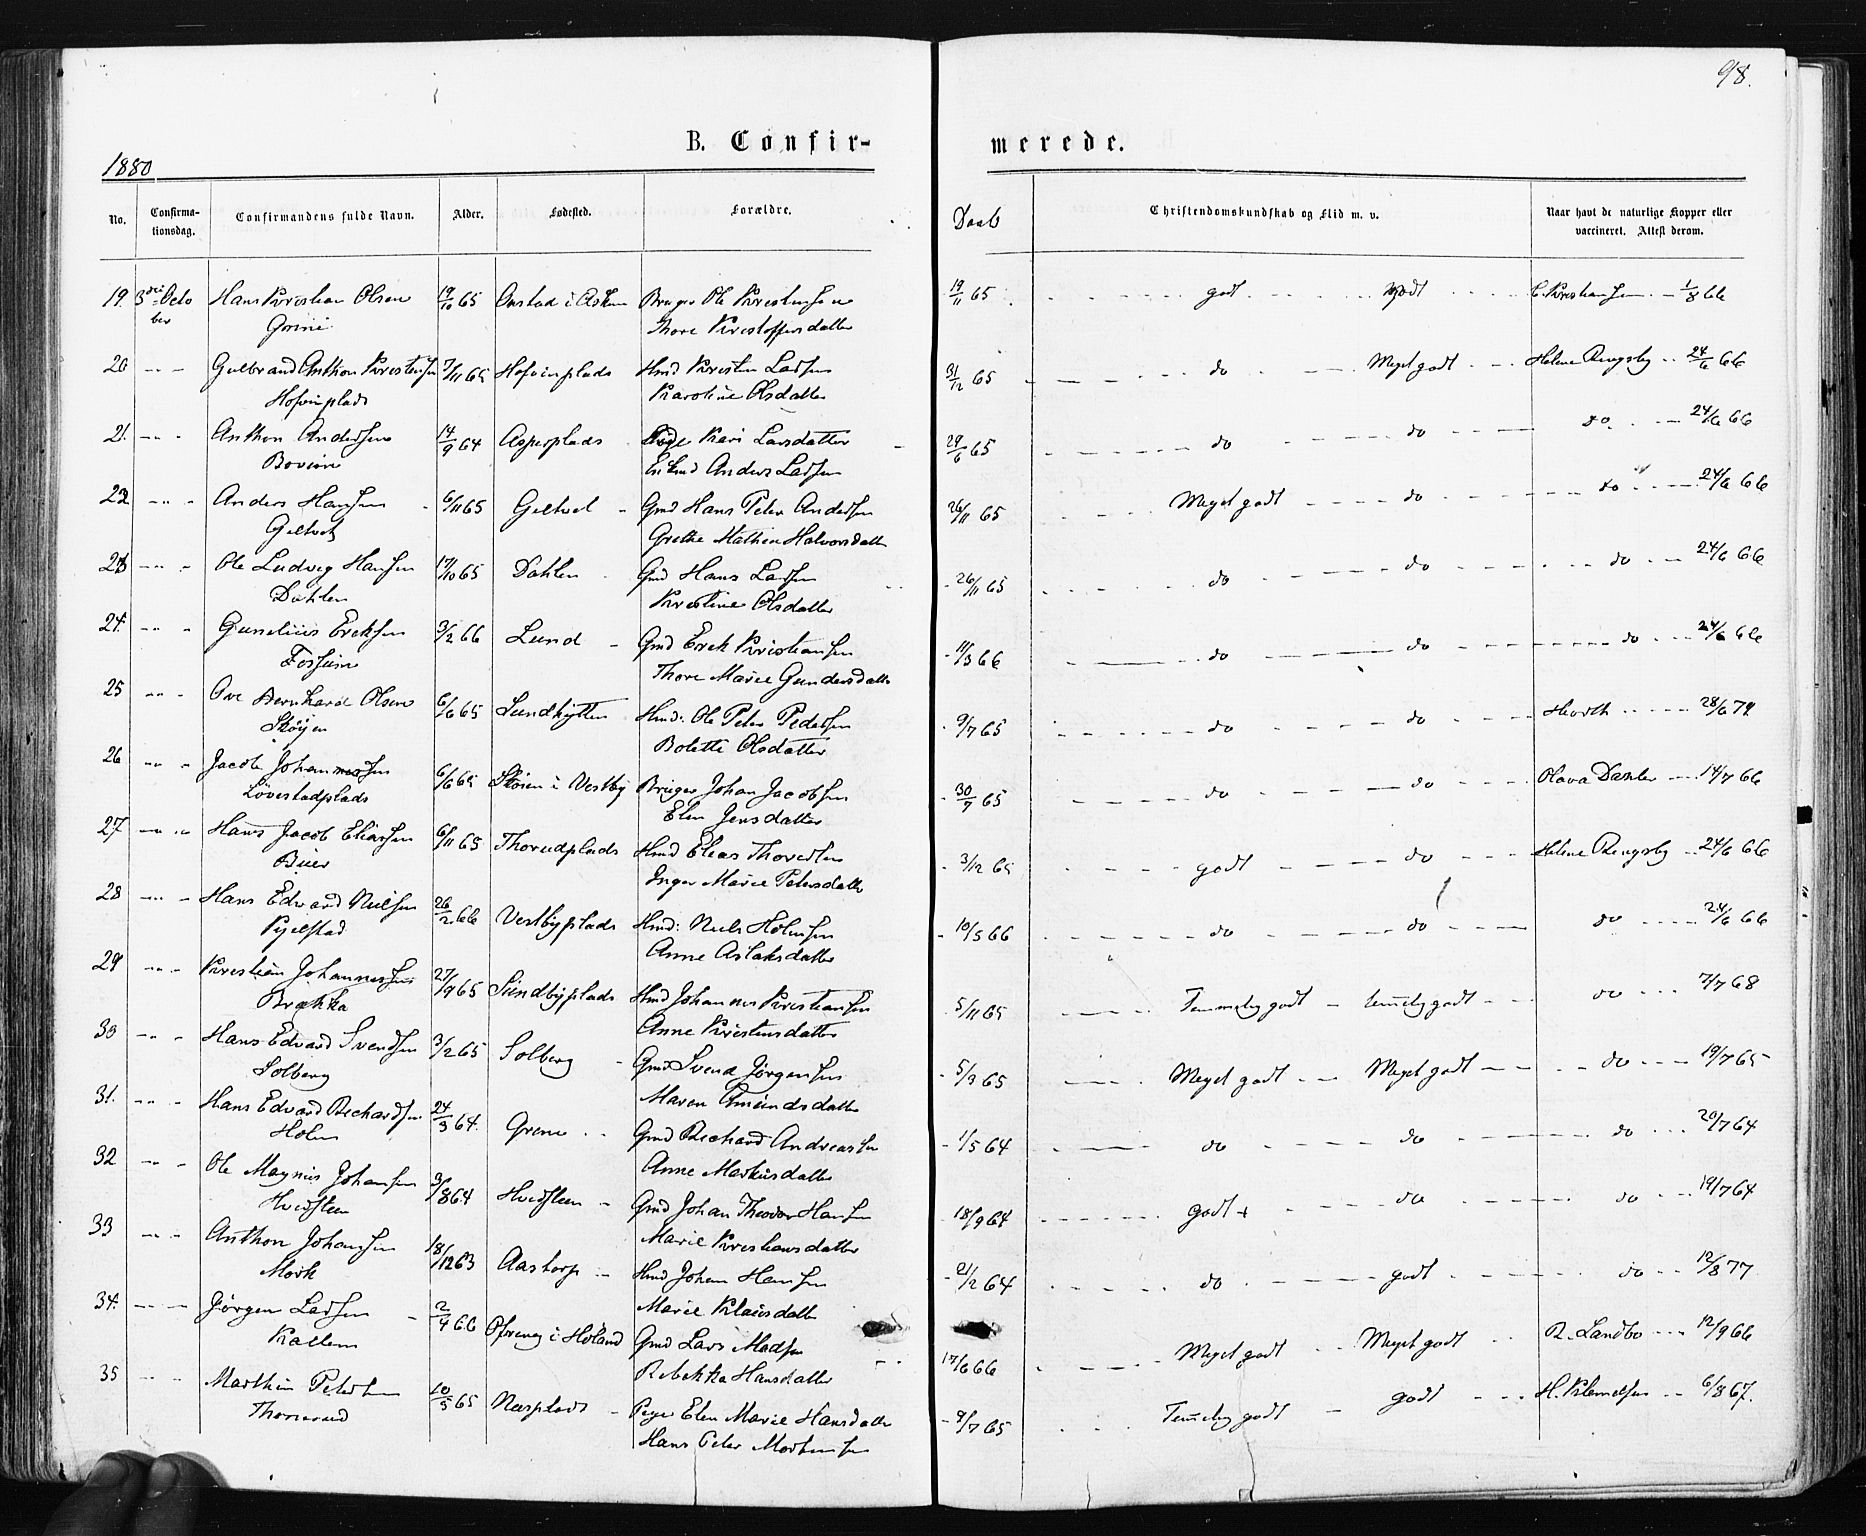 98.
B. Confir- merede.
1880
No. Confirma-tionsdag. Confirmandens fulde Navn. Alder. Fødested. Forældre. Daab Christendomskundskab og Flid m. v. Naar havt de naturlige Kopper eller vaccineret. Attest derom.
19. 3die Octo Hans Kristian Olsen 19/10 65 Onstad i Askim Bruger Ole Kristensen 19/11 65 godt godt C. Kristiansen 1/8 66
ber Grini Thore Kristoffersdatter
20 Gulbrand Anthon Kristensen 7/11 65 Hofvinplads Hmd Kristen Larsen 31/12 65 do Meget godt Helene Ringsby 24/6 66
Hofvinplads Karoline Olsdatter
21. Anthon Andersen 14/9 64 Asperplads Pige Kari Larsdatter 29/6 65 do do do 24/6 66
Bovim Anders Larsen
22 Anders Hansen 6/11 65 Geltvet Gmd Hans Peter Andersen 26/11 65 Meget godt do do 24/6 66
Geltvet Grethe Mathea Halvorsdatter
23 Ole Ludvig Hansen 17/10 65 Dahlen Gmd Hans Larsen 26/11 65 do do do 24/6 66
Dahlen Kristine Olsdatter
24. Gunelius Ericksen 3/2 66 Lund Gmd Erick Kristiansen 11/3 66 do do do 24/6 66
Fossum Thore Marie Gundersdatter
25 Ove Bernhard Olsen 6/6 65 Lundhytten Hmd: Ole Peter Pedersen 9/7 65 do do Hiorth 28/6 79
Skøyen Bolette Olsdatter
26 Jacob Johannessen 6/6 65 Skøien i Vestby Bruger Johan Jacobsen 30/7 65 do do Olava Dahler 14/7 66
Løvestadplads Elen Jensdatter
27 Hans Jacob Eliassen 6/11 65 Thorudplads Hmd Elias Thoredsen 3/12 65 godt do Helene Ringsby 24/6 66
Buer Inger Marie Petersdatter
28 Hans Edvard Nielsen 26/2 66 Vestbyplads Hmd: Niels Holmsen 10/5 66 do do do 24/6 66
Kjelstad Anne Aslaksdatter
29 Kristian Johannessen 27/9 65 Sundbyplads Hmd Johannes Kristiansen 5/11 65 Temmelig godt temelig godt do 7/7 68
Brækka Anne Kristensdatter
30 Hans Edvard Svendsen 3/2 65 Solberg Gmd Svend Jørgensen 5/3 65 Meget godt Meget godt do 19/7 65
Solberg Maren Amundsdatter
31. Hans Edvard Richardsen 24/3 64. Grene Gmd Richard Andreassen 1/5 64 do do do 20/7 64
Holm Anne Markusdatter
32 Ole Magnus Johansen 3/8 64 Hvidsteen Gmd Johan Theodor Hansen 18/9 64 godt + do do 19/7 64
Hvidsteen Marie Kristiansdatter
33 Anthon Johansen 18/12 63 Aastorp Hmd Johan Hansen 21/2 64 do godt do 12/8 77
Mork Marie Klausdatter
34. Jørgen Larsen 2/4 66 i Høland Gmd Lars Madsen 17/6 66 Meget godt Meget godt R. Landbo 12/9 66
Kallem Rebekka Hansdatter
35 Marthin Petersen 10/5 65 Næsplads Pige Elen Marie Hansdatter 9/7 65 Temelig godt godt H. Klemetsen 6/8 67.
Thonerud Hans Peter Mortensen